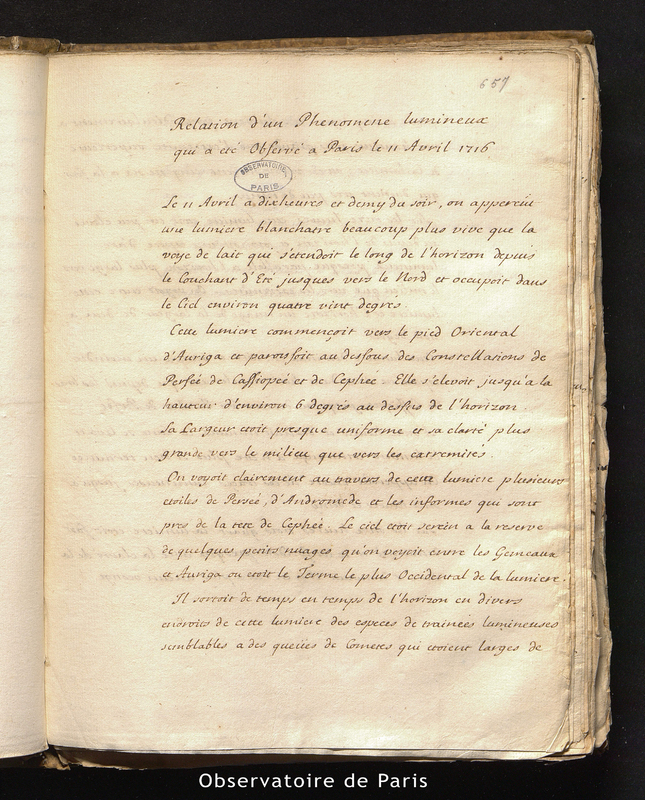 657
Relation d'un Phenomene lumineux
qui a été Observé a Paris le 11 Avril 1716
OBSERVATOIRE
DE
PARIS
Le 11 Avril a dix heures et demy du soir, on apperçut
une lumiere blanchatre beaucoup plus vive que la
voye de lait qui s'etendoit le long de l'horizon depuis
le Couchant d'Eté jusques vers le Nord et occupoit dans
le Ciel environ quatre vint degrés
Cette lumiere commençoit vers le pied Oriental
d'Auriga et paroissoit au dessous des Constellations de
Persée de Cassiopeé et de Cepheé. Elle s'elevoit jusqu'a la
hauteur d'environ 6 degrés au dessus de l'horizon.
Sa Largeur etoit presque uniforme et sa clarté plus
grande vers le milieu que vers les extremités.
On voyoit clairement au travers de cette lumiere plusieurs
etoiles de Perseé, d'Andromede et les informes qui sont
pres de la tete de Cepheé. Le ciel etoit serein a la reserve
de quelques petits nuages qu'on voyoit entre les Gemeaux
et Auriga ou etoit le Terme le plus Occidental de la lumiere.
Il sortoit de temps en temps de l'horizon en divers
endroits de cette lumiere des especes de trainées lumineuses
semblables a des queües de Cometes qui etoient larges de
Observatoire de Paris